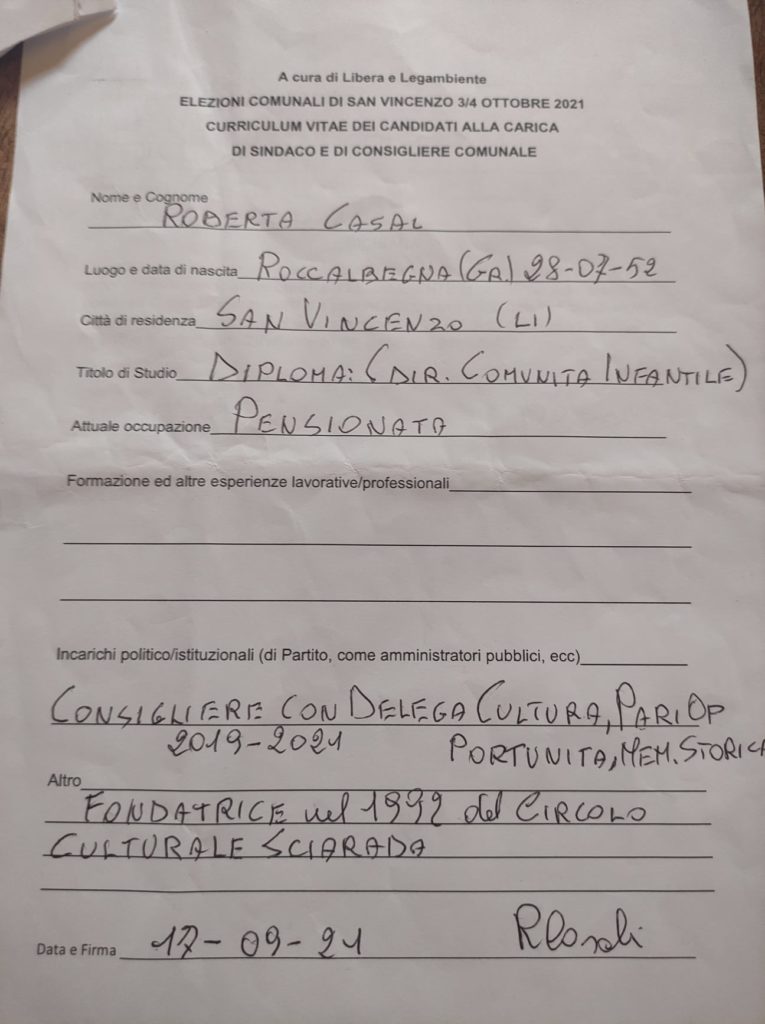 A cura di Libera e Legambiente
ELEZIONI COMUNALI DI SAN VINCENZO 3/4 OTTOBRE 2021
CURRICULUM VITAE DEI CANDIDATI ALLA CARICA
DI SINDACO E DI CONSIGLIERE COMUNALE
Nome e Cognome
ROBERTA CASAL
Luogo e data di nascita ROCCALBEGNA (GR) 28-07-52
Città di residenza SAN VINCENZO (LI)
Titolo di Studio DIPLOMA: (DIR. COMUNITA INFANTILE)
Attuale occupazione PENSIONATA
Formazione ed altre esperienze lavorative/professionali
Incarichi politico/istituzionali (di Partito, come amministratori pubblici, ecc)
CONSIGLIERE CON DELEGA CULTURA, PARI OP
2019-2021 PORTUNITA, MEM. STORICA
Altro
FONDATRICE nel 1992 del CIRCOLO
CULTURALE SCIARADA
Data e Firma 17-09-21